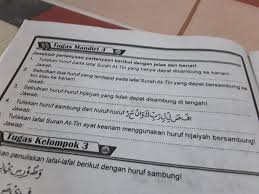 Tugas Mandiri 3
Jawablah pertanyaan-pertanyaan berikut dengan jelas dan benar!
1. Tuliskan huruf pada lafal Surah At-Tin yang hanya dapat disambung ke kanan!
Jawab:
2. Sebutkan dua huruf yang terdapat pada lafal Surah At-Tin yang dapat bersambung ke
kiri atau ke kanan!
Jawab:
3. Sebutkan huruf-huruf hijaiyah yang tidak dapat disambung di tengah!
Jawab:
4. Tuliskan huruf sambung dari huruf
Jawab:
5. Tuliskan lafal Surah At-Tin ayat keenam menggunakan huruf hijaiyah bersambung!
Jawab:
Tugas Kelompok 3
penulisan lafal-lafal berikut dengan huruf sambung!
وَطُورِ سِي